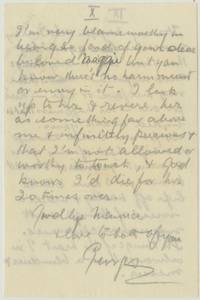 X
I'm very blameworthy in
being so fond of your dear
beloved Maggie but you
know there's no harm meant
or envy in it. I look
up to her & revere her
as something far above
me & infinitely precious &
that I'm not allowed or
worthy to touch, & God
knows I'd die for her
20 times over.
Goodbye Maurice
& love to both of you